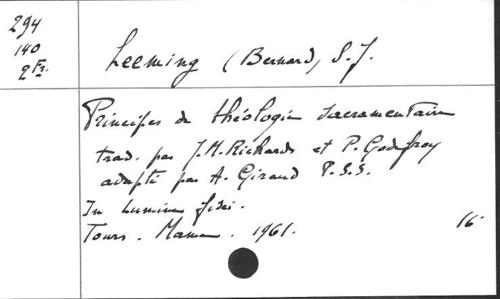 294
140
2 Fs.
Leeming (Bernard), S.J.
Principes de théologie sacramentaire
trad. par J.H. Richards et P. Godefroy
adapté par A. Giraud P.S.S.
In lumine fidei.
Tours. Mame. 1961. 16